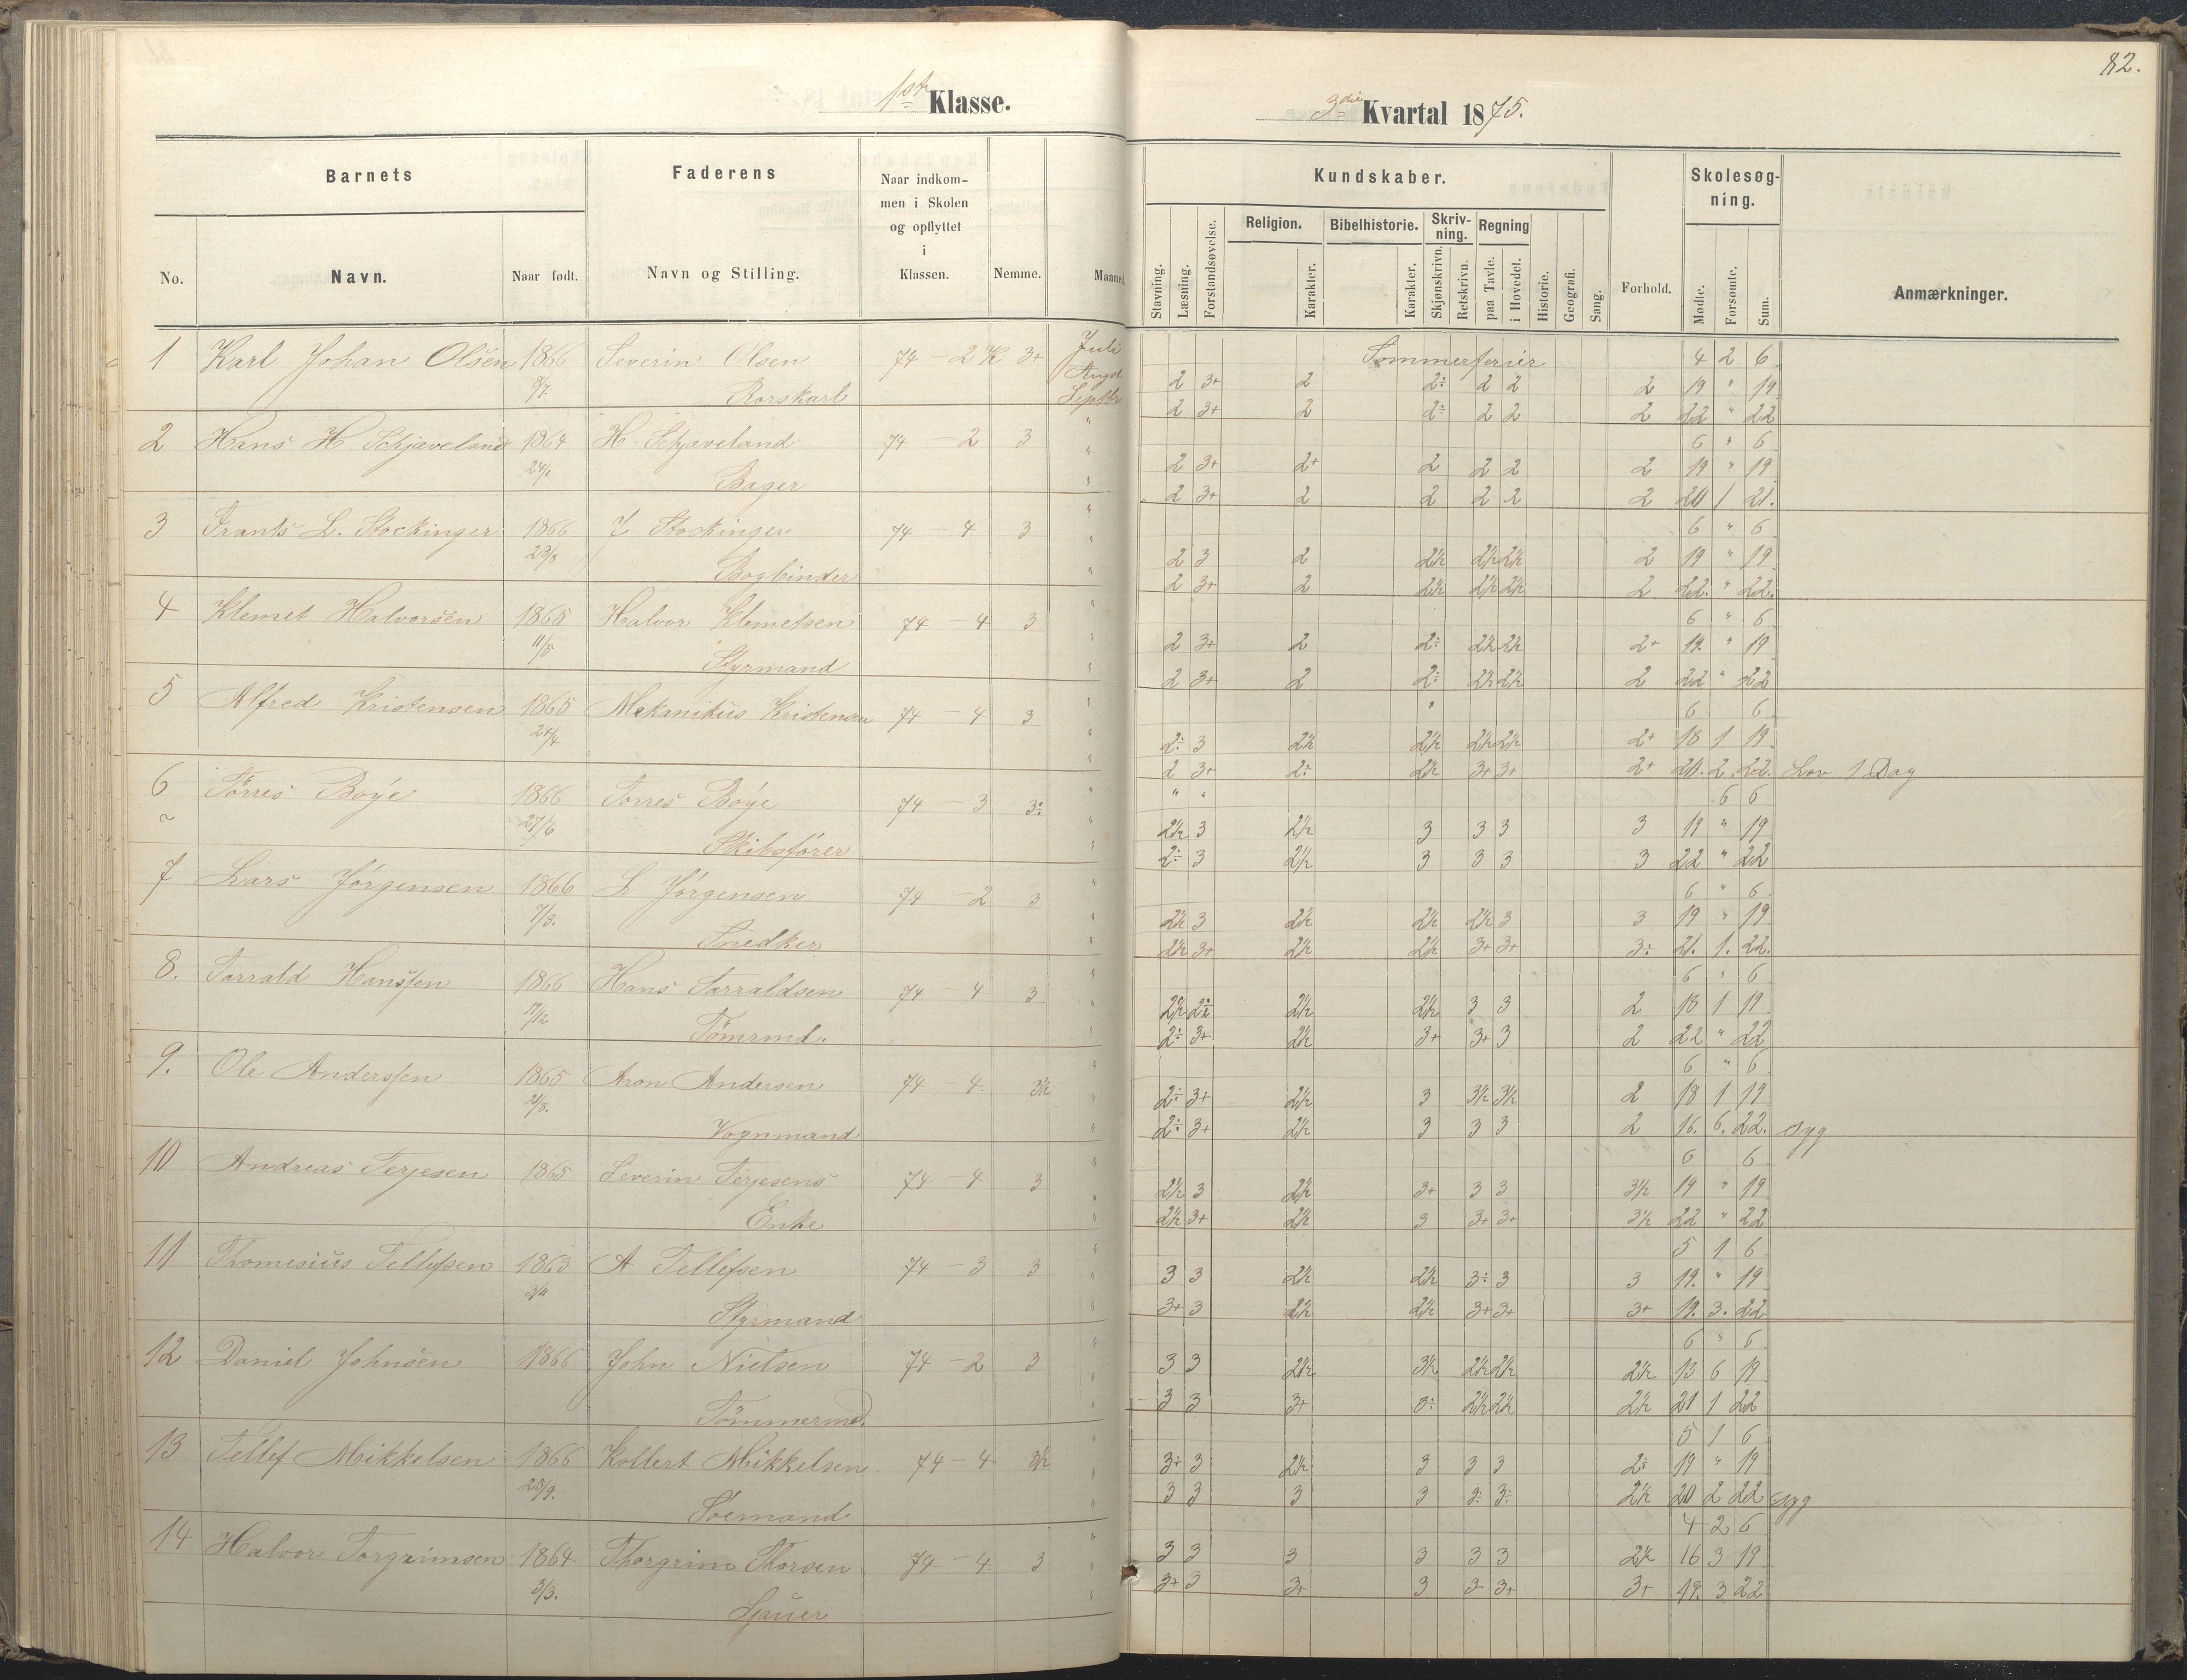 82.
1ste Klasse.
3die Kvartal 1875.
Barnets
Faderens
Naar indkommen i Skolen og opflyttet i Klassen.
Nemme.
Maaned
No.
Navn.
Naar født.
Navn og Stilling.
Kundskaber.
Stavning.
Læsning.
Forstandsøvelse.
Religion.
Karakter.
Bibelhistorie.
Karakter.
Skrivning.
Skjønskrivn.
Retskrivn.
Regning
paa Tavle.
i Hovedet.
Historie.
Geografi.
Sang.
Forhold.
Skolesøgning.
Mødte.
Forsømte.
Sum.
Anmærkninger.
1 Karl Johan Olsen 1866 Severin Olsen 74 – 2 K 3+ Juli Sommerferier 4 2 6
8/7. Rorskarl August 2 3+ 2 2÷ 2 2 2 19 " 19
Septbr 2 3+ 2 2÷ 2 2 2 22 " 22
2 Hans H Schjæveland 1864 H Schjæveland 74 – 2 3 " 6 " 6
24/1 Bager " 2 3+ 2+ 2 2 2 2 19 " 19
" 2 3+ 2 2 2 2 2 20 1 21.
3 Frants L. Stockinger 1866 J Stockinger 74 – 4 3 " 6 " 6
28/3 Bogbinder " 2 3 2 2½ 2½ 2½ 2 19 " 19
" 2 3+ 2 2½ 2½ 2½ 2 22. " 22.
4 Klemet Halvorsen 1865 Halvor Klemetsen 74 – 4 3 " 6 " 6
11/5 Styrmand " 2 3+ 2 2÷ 2½ 2½ 2+ 19. " 19
" 2 3+ 2 2÷ 2½ 2½ 2 22 " 22
5 Alfred Kristensen 1865 Mekanikus Kristensen 74 – 4 3 " 6 6
24/4 " 2÷ 3 2½ 2½ 2½ 2½ 2+ 18 1 19
" 2 3+ 2÷ 2½ 3+ 3+ 2+ 20. 2. 22. Lov 1 Dag
6 Törres Boÿe 1866 Torres Boÿe 74 – 3 3÷ " " " 6 6
27/6 Skibsfører " 2½ 3 2½ 3 3 3 3 19 " 19
" 2÷ 3 2½ 3 3 3 3 22 " 22
7 Lars Jörgensen 1866 L Jörgensen 74 – 2 3 " 6 " 6
7/3. Snedker " 2½ 3 2½ 2½ 2½ 3 3 19 " 19
" 2½ 3+ 2½ 2½ 3+ 3+ 3÷ 21. 1. 22.
8. Tarrald Hanssen 1866 Hans Tarraldsen 74 – 4 3 " 6 " 6
17/12 Tömrmd. " 2½ 2÷ 2½ 2½ 3 3 2 18 1 19
" 2÷ 3+ 2½ 3+ 3+ 3 2 22 " 22
9. Ole Anderssen 1865 Aron Andersen 74 – 4. 3½ " 6 " 6
2/8. Vognmand " 2÷ 3+ 2½ 3 3½ 3½ 2 18 1 19
" 2÷ 3+ 2½ 3 3 3 2 16. 6. 22. Syg
10 Andreas Terjesen 1865 Severin Terjesens 74 – 4 3 " 6 6
Enke " 2½ 3 2½ 3+ 3 3 3½ 19 " 19
" 2½ 3+ 2½ 3 3+ 3+ 3½ 22 " 22
11 Thomesius Tellefsen 1863 A Tellefsen 74 – 3 3 " 5 1 6
Styrmand " 3 3 2½ 2½ 3÷ 3 3 19. " 19
" 3+ 3 2½ 2½ 3+ 3+ 3+ 19. 3. 22
12 Daniel Johnsen 1866 John Nielsen 74 – 2 3 " 6 " 6
Tömmermd. " 3 3 2½ 3½ 2½ 2½ 2½ 13 6 19
" 3 3 3+ 3÷ 2½ 2½ 2½ 21 1 22
13 Tellef Mikkelsen 1866 Kollert Mikkelsen 74 – 4 3½ " 5 1 6
20/9. Söemand " 3÷ 3 2½ 3 3 3 2÷ 19 " 19
" 3 3 3 3 3÷ 3÷ 2½ 20 2 22 Syg
14 Halvor Torgrimsen 1864 Thorgrim Thorsen 74 – 4. 3 " 4 2 6
3/3. " 3 3 3 3 3 3 2½ 16 3 19
" 3+ 3 3+ 3 3 3+ 3+ 19. 3 22